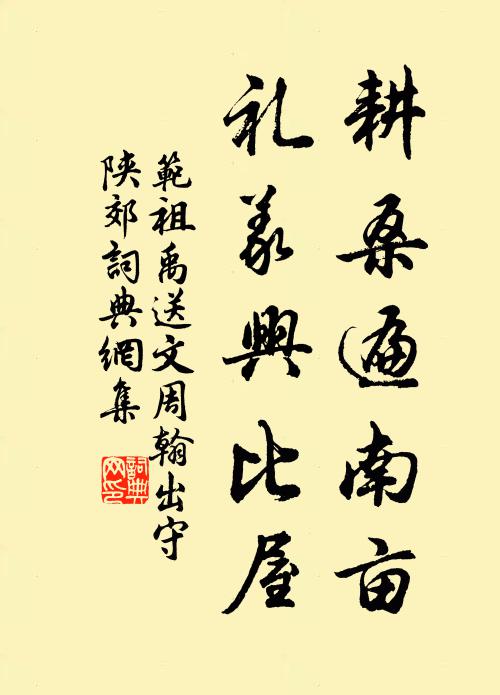 耕桑遍南亩
礼義興比屋
範祖禹送文周翰出守
陝郊詞典網集
詞典
网印